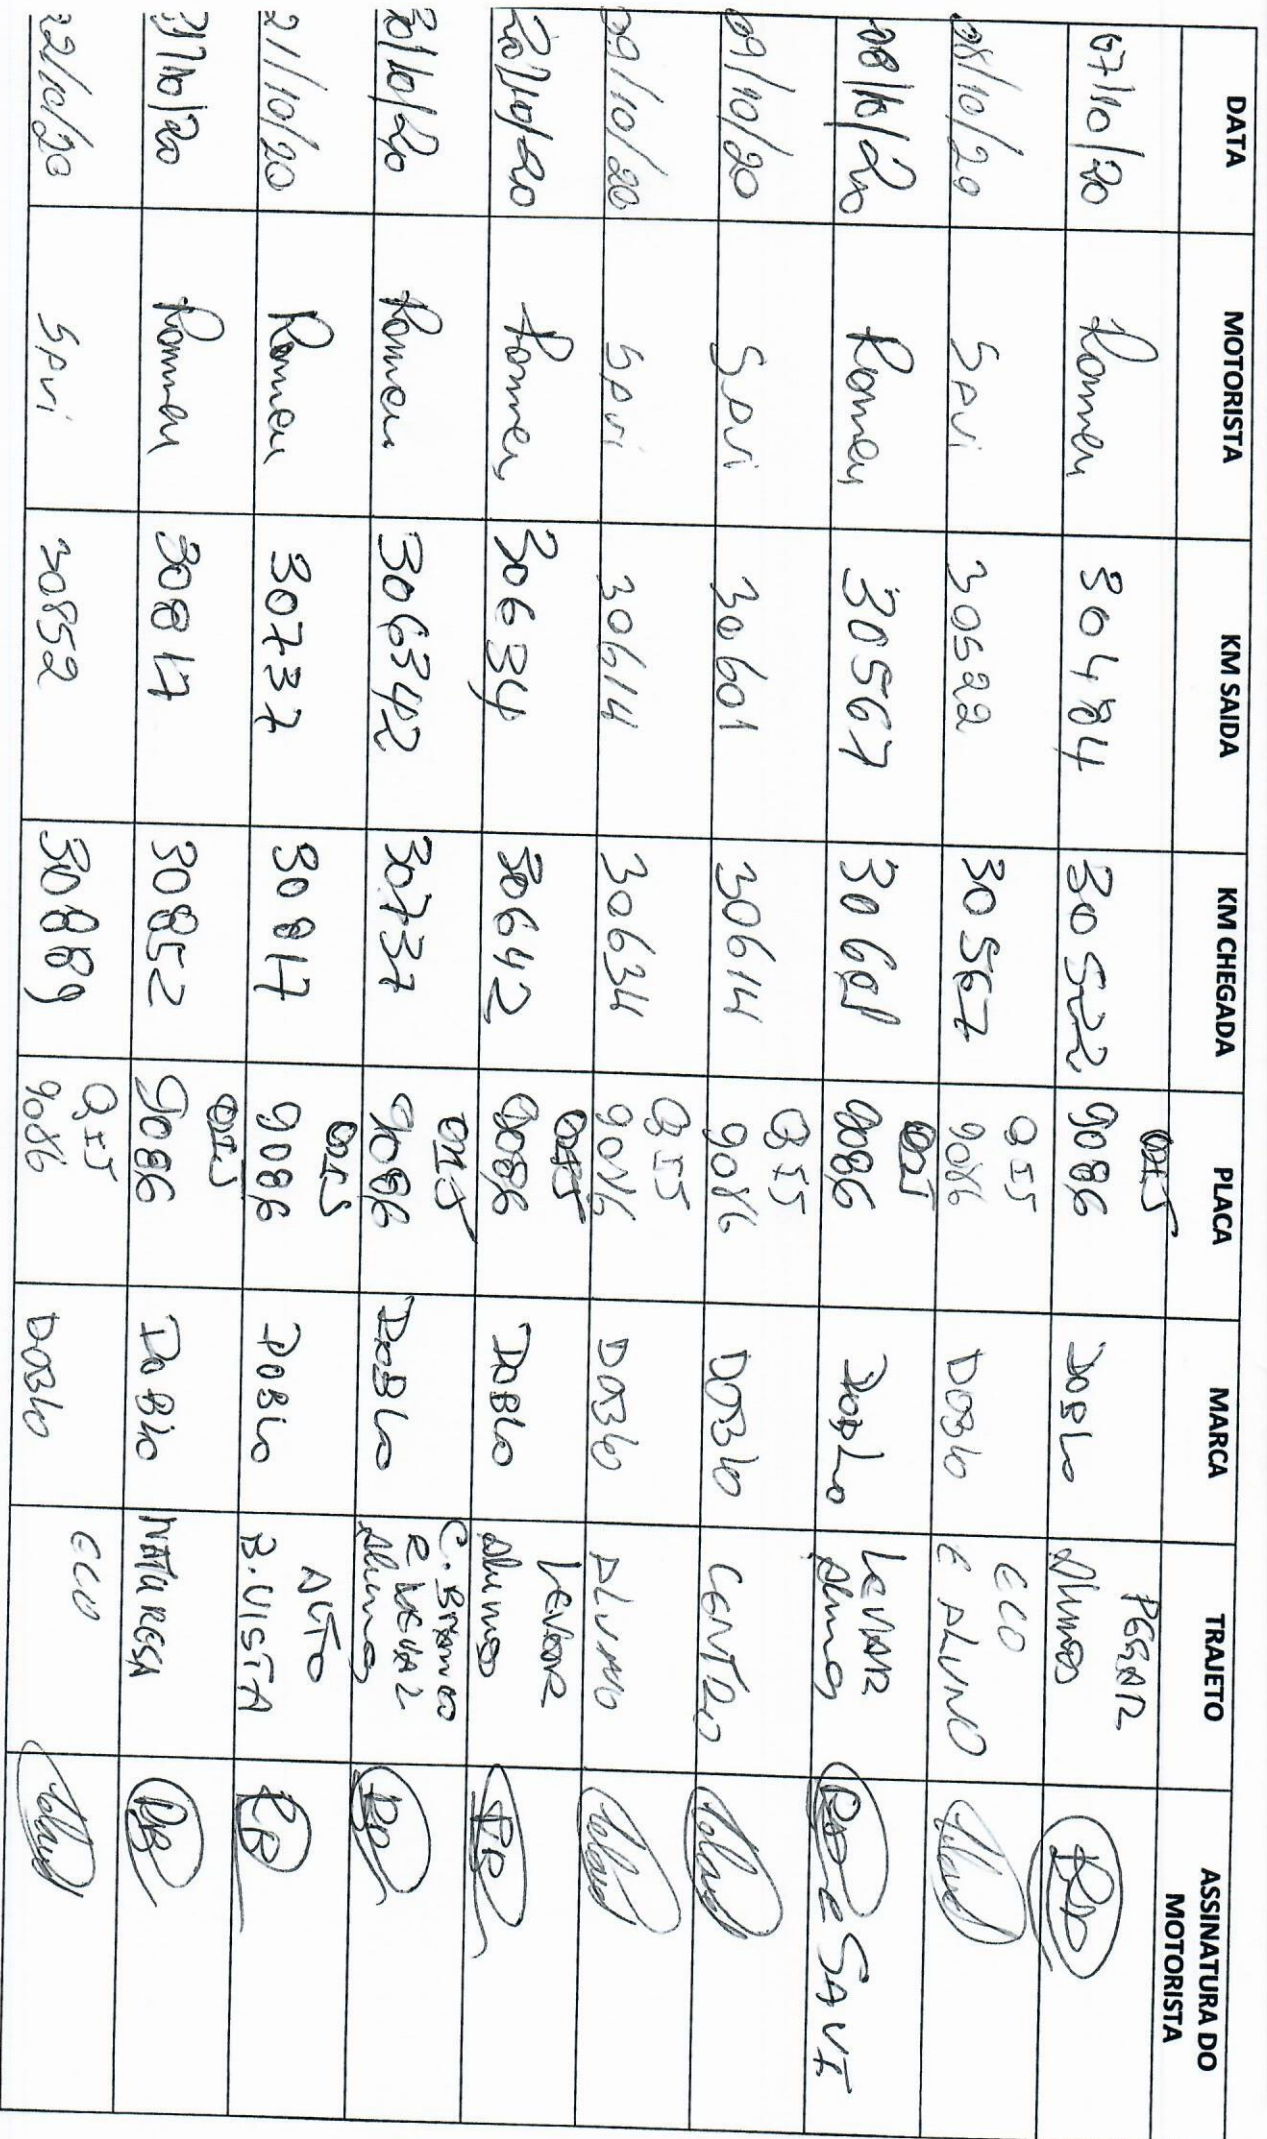 DATA MOTORISTA KM SAIDA KM CHEGADA PLACA MARCA TRAJETO ASSINATURA DO MOTORISTA
07/10/20 Romeu 30484 30522 QIJ 9086 DOBLO PEGAR Alunos
08/10/20 SAVI 30522 30567 QIJ 9086 DOBLO ECO E ALUNO
08/10/20 Romeu 30567 30601 QIJ 9086 DOBLO LEVAR Alunos E SAVI
09/10/20 SAVI 30601 30614 QIJ 9086 DOBLO CENTRO
09/10/20 SAVI 30614 30634 QIJ 9086 DOBLO ALUNO
20/10/20 Romeu 30634 30642 QIJ 9086 DOBLO LEVAR Alunos
20/10/20 Romeu 306342 30737 QIJ 9086 DOBLO C. BRANCO E LEVAR Alunos
21/10/20 Romeu 30737 30817 QIJ 9086 DOBLO ALTO B. VISTA RB
21/10/20 Romeu 30817 30852 QIJ 9086 DOBLO NATURESA RB
22/10/20 SAVI 30852 30889 QIJ 9086 DOBLO ECO